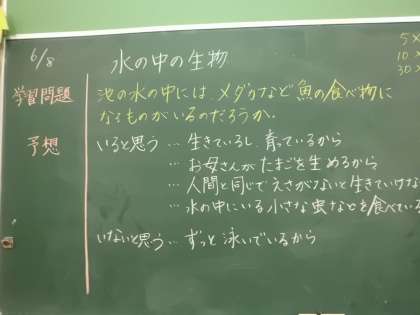 6/8
水の中の生物
5×
10×
30×
学習問題
池の水の中には、メダカなど魚の食べ物に
なるものがいるのだろうか。
予想
いると思う…生きているし、育っているから
…お母さんがたまごを生めるから
…人間と同じでえさがないと生きていけな
…水の中にいる小さな虫などを食べている
いないと思う…ずっと泳いでいるから